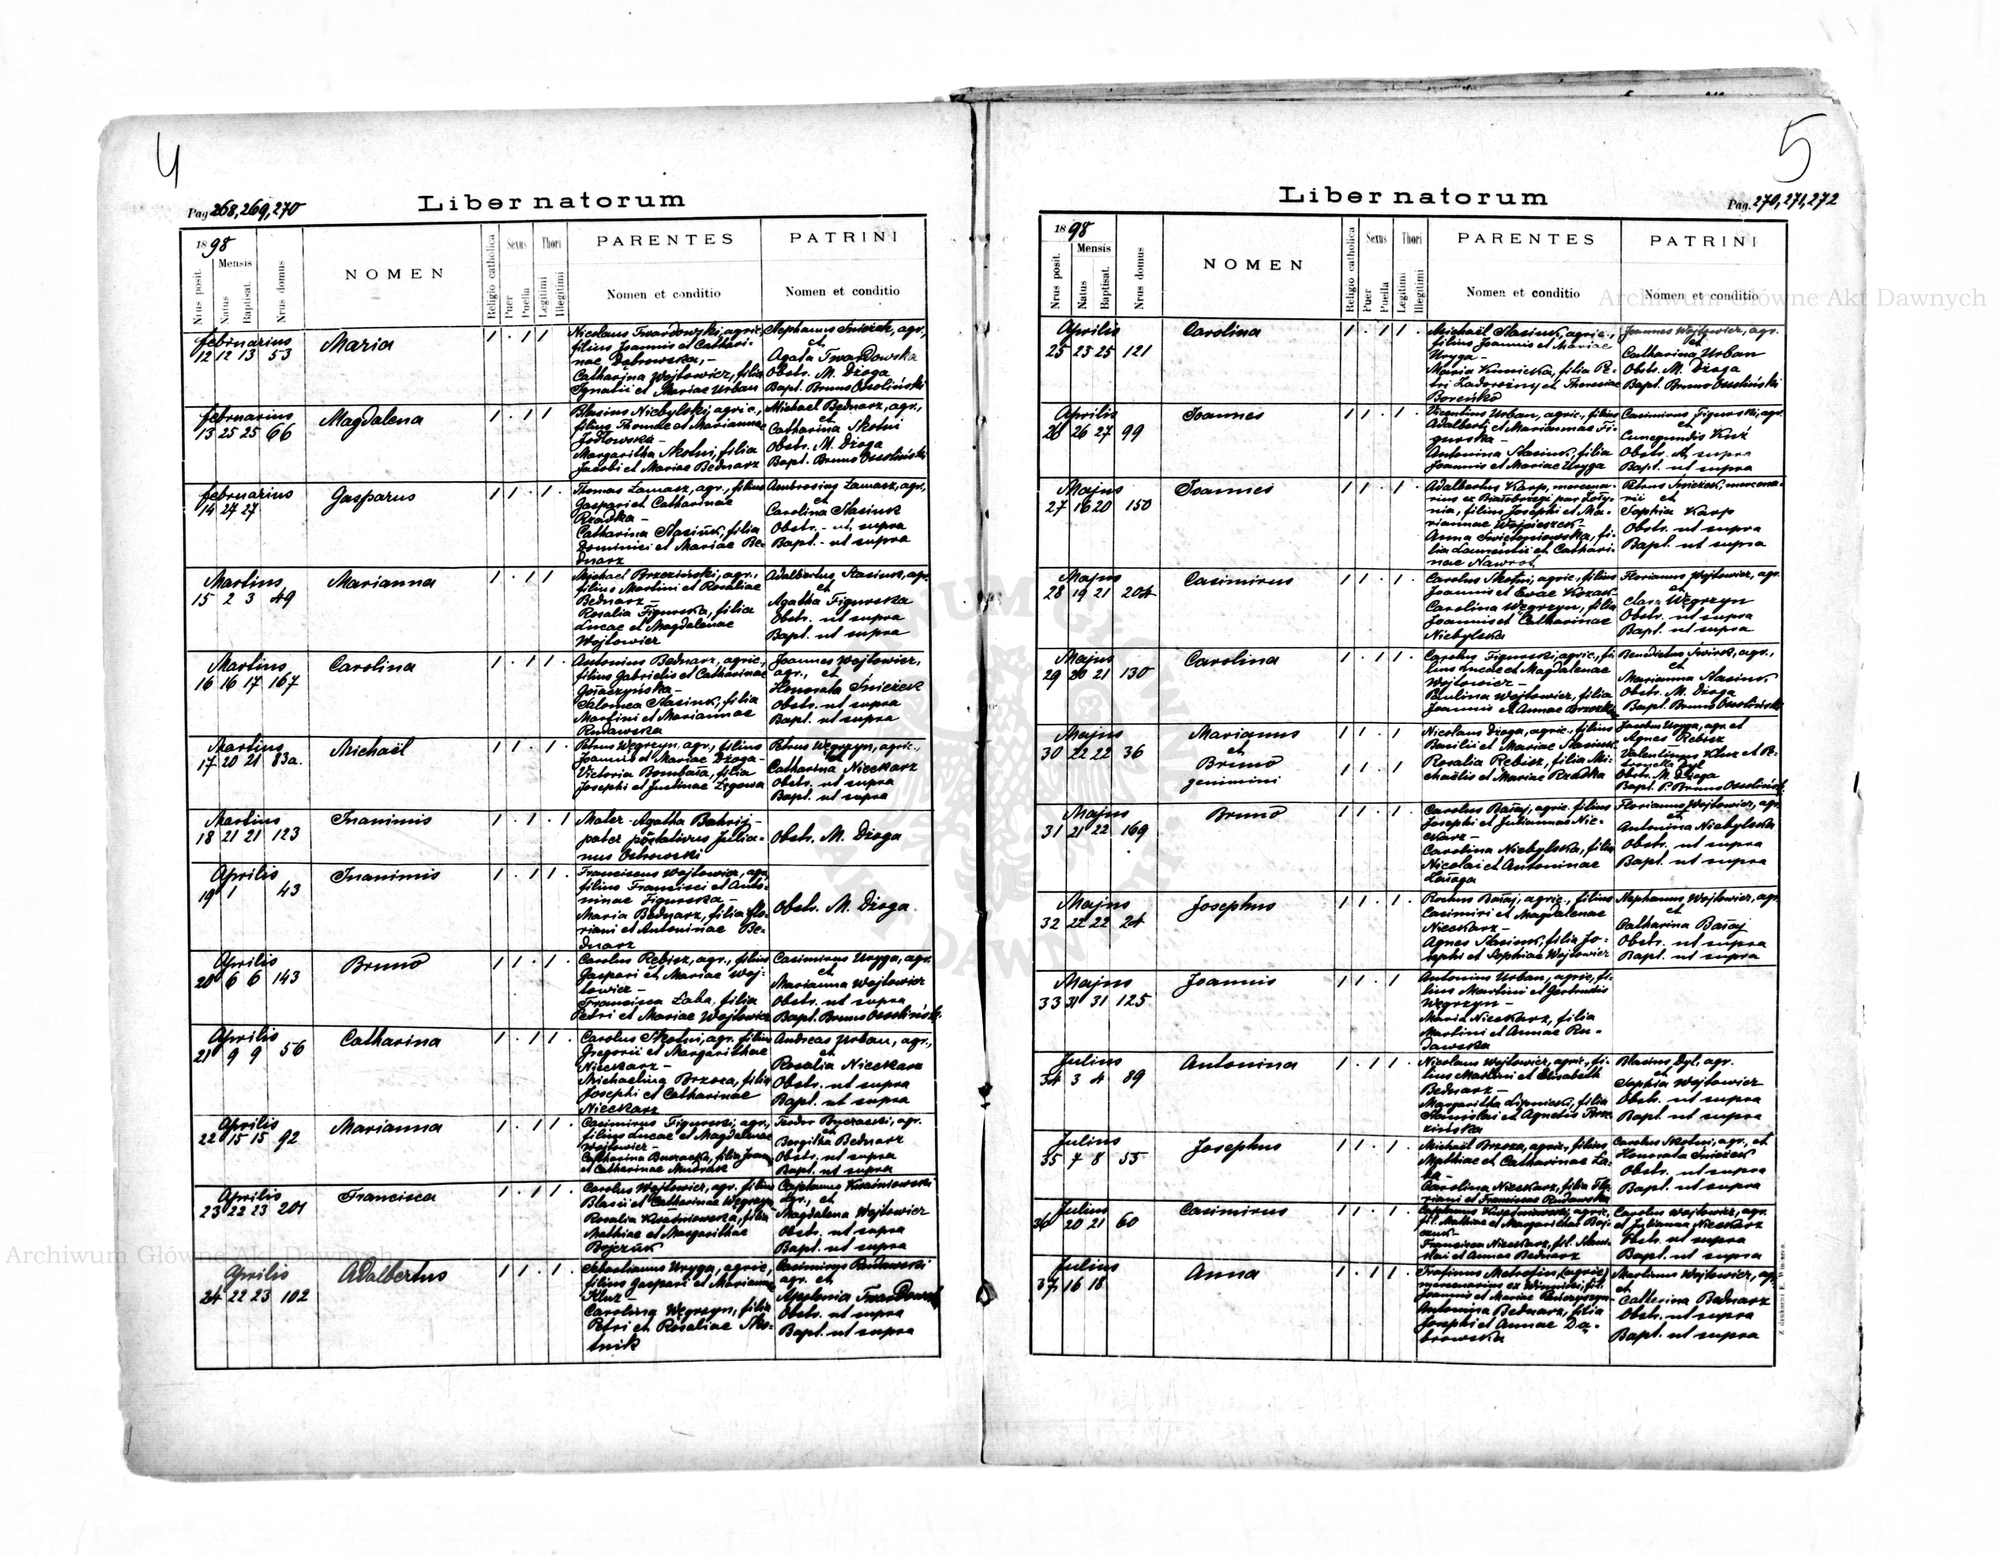 4
Pag 268, 269, 270
Liber natorum
1898
Nrus posit.
Mensis
Natus
Baptisat.
Nrus domus
NOMEN
Religio catholica
Sexus
Puer
Puella
Thori
Legitimi
Illegitimi
PARENTES
Nomen et conditio
PATRINI
Nomen et conditio
februarius
12 12 13 53
Maria
Nicolaus Twardowski, agric.,
filius Joannis et Cathari-
nae Dąbrowska,-
Catharina Wojtowicz, filia
Ignatii et Mariae Urban
Stephanus Śnieżek, agr.,
et
Agata Twardowska
Obstr. M. Dżoga
Bapt. Bruno Ossoliński
februarius
13 25 25 66
Magdalena
Blasius Niebylski, agric.,
filius Thomae et Mariannae
Jodłowska-
Margaritha Skotni, filia
Jacobi et Mariae Bednarz
Michael Bednarz, agr.,
Catharina Skotni
Obstr. M. Dżoga
Bapt. Bruno Ossoliński
februarius
14 27 27
Gasparus
Thomas Lamasz, agr., filius
Gaspari et Catharinae
Rządka-
Catharina Stasiuk, filia
Dominici et Mariae Be-
dnarz
Ambrosius Lamasz, agr.,
et
Carolina Stasiuk
Obstr. - ut supra
Bapt. - ut supra
Martius
15 2 3 49
Marianna
Michael Brzeziński, agr.,
filius Martini et Rosaliae
Bednarz-
Rosalia Figurska, filia
Lucae et Magdalenae
Wojtowicz
Adalbertus Stasiuk, agr.
et
Agatha Figurska
Obstr. ut supra
Bapt. ut supra
Martius
16 16 17 167
Carolina
Antonius Bednarz, agric.,
filius Gabrielis et Catharinae
Salomea Stasiuk, filia
Martini et Mariannae
Rudawska
Joannes Wojtowicz,
agr., et
Honorata Śnieżek
Obstr. ut supra
Bapt. ut supra
Martius
17 20 21 83a.
Michaël
Petrus Węgrzyn, agr., filius
Joannis et Mariae Dżoga-
Victoria Bombara, filia
Josephi et Justinae
Petrus Węgrzyn, agric.,
et
Catharina Nieckarz
Obstr. ut supra
Bapt. ut supra
Martius
18 21 21 123
Inanimis
Mater - Agatha Batrij-
pater putativus Julia-
nus Ostrowski
Obstr. M. Dżoga
Aprilis
19 1 43
Inanimis
Franciscus Wojtowicz, agr.
filius Francisci et Anto-
ninae Figurska-
Maria Bednarz, filia Flo-
riani et Antoninae Be-
dnarz
Obstr. M. Dżoga
Aprilis
20 6 6 143
Bruno
Carolus Rebisz, agr., filius
Gaspari et Mariae Woj-
towicz-
Francisca Łaba, filia
Petri et Mariae Wojtowicz
Casimirus Uryga, agr.
et
Marianna Wojtowicz
Obstr. ut supra
Bapt. Bruno Ossoliński
Aprilis
21 9 9 56
Catharina
Carolus Skotni, agr. filius
Gregorii et Margarithae
Nieckarz-
Michaelina Brzoza, filia
Josephi et Catharinae
Nieckarz
Andreas Urban, agr.,
et
Rosalia Nieckarz
Obstr. ut supra
Bapt. ut supra
Aprilis
22 15 15 92
Marianna
Casimirus Figurski, agr.,
filius Lucae et Magdalenae
Wojtowicz
Catharina Buczacka, filia Joan.
et Catharinae Mudrak
Teodor Buczacki, agr.
et
Bergitha Bednarz
Obstr. ut supra
Bapt. ut supra
Aprilis
23 22 23 201
Francisca
Carolus Wojtowicz, agr. filius
Blasii et Catharinae Węgrzyn
Rosalia Kwaśniowska, filia
Mathiae et Margarithae
Bojczuk
Cajetanus Kwaśniowski
agr., et
Magdalena Wojtowicz
Obstr. ut supra
Bapt. ut supra
Aprilis
24 22 23 102
Adalbertus
Sebastianus Uryga, agric.,
filius Gaspari et Marianae
Kluz-
Carolina Węgrzyn, filia
Petri et Rosaliae Sko-
tnik
Casimirus Rudawski
agr. et
Apolonia Twardowska
Obstr. ut supra
Bapt. ut supra
5
Liber natorum
Pag. 270, 271, 272
1898
Nrus posit.
Mensis
Natus
Baptisat.
Nrus domus
NOMEN
Religio catholica
Sexus
Puer
Puella
Thori
Legitimi
Illegitimi
PARENTES
Nomen et conditio
PATRINI
Nomen et conditio
Aprilis
25 23 25 121
Carolina
Michaël Stasiuk, agric.,
filius Joannis et Mariae
Uryga-
Maria Kunicka, filia Pe-
tri Zadorożny et Theresiae
Boreńko
Joannes Wojtowicz, agr.
et
Catharina Urban
Obstr. M. Dżoga
Bapt. Bruno Ossoliński
Aprilis
26 26 27 99
Joannes
Vicentius Urban, agric., filius
Adalberti et Mariannae Fi-
gurska-
Antonina Stasiuk, filia
Joannis et Mariae Uryga
Casimirus Figurski, agr.
et
Cunegundis Kuź
Obstr. ut supra
Bapt. ut supra
Majus
27 16 20 150
Joannes
Adalbertus Karp, mercena-
rius ex Białobrzegi par. Żoły-
nia, filius Josephi et Ma-
riannae Wojcieszek-
Anna Świętoniowska, fi-
lia Laurentii et Cathari-
nae Nawrot
Petrus Śnieżek, mercena-
rii et
Sophia Karp
Obstr. ut supra
Bapt. ut supra
Majus
28 19 21 204
Casimirus
Carolus Skotni, agric., filius
Joannis et Evae Kozak-
Carolina Węgrzyn, filia
Joannis et Catharinae
Niebylska
Florianus Wojtowicz, agr.
et
Clara Węgrzyn
Obstr. ut supra
Bapt. ut supra
Majus
29 20 21 130
Carolina
Carolus Figurski, agric., fi-
lius Lucae et Magdalenae
Wojtowicz-
Paulina Wojtowicz, filia
Joannis et Annae Brzozka
Benedictus Świrk, agr.,
et
Marianna Stasiuk
Obstr. M. Dżoga
Bapt. Bruno Ossoliński
Majus
30 22 22 36
Marianus
et
Bruno
gemimini
Nicolaus Dżoga, agric., filius
Basilii et Mariae Stasiuk
Rosalia Rębisz, filia Mi-
chaëlis et Mariae Rządka
Jacobus Uryga, agr. et
Agnes Rebisz
Valentinus Kluz et Pe-
tronella Dyl
Obstr. M. Dżoga
Bapt. P. Bruno Ossoliński
Majus
31 21 22 169
Bruno
Carolus Bataj, agric. filius
Josephi et Juliannae Nie-
ckarz-
Carolina Niebylska, filia
Nicolai et Antoninae
Florianus Wojtowicz, agr.
et
Antonina Niebylska
Obstr. ut supra
Bapt. ut supra
Majus
32 22 22 24
Josephus
Rochus Bataj, agric., filius
Casimiri et Magdalenae
Nieckarz-
Agnes Stasiuk, filia Jo-
sephi et Sophiae Wojtowicz
Stephanus Wojtowicz, agr.
et
Catharina Bataj
Obstr. ut supra
Bapt. ut supra
Majus
33 31 31 125
Joannis
Antonius Urban, agric., fi-
lius Martini et Gertrudis
Węgrzyn-
Maria Nieckarz, filia
Martini et Annae Ru-
dawska
Julius
34 3 4 89
Antonina
Nicolaus Wojtowicz, agric., fi-
lius Martini et Elisabeth
Bednarz-
Margaritha Lipnicki, filia
Stanislai et Agnetis Brze-
zińska
Blasius Dyl, agr.
et
Sophia Wojtowicz
Obstr. ut supra
Bapt. ut supra
Julius
35 7 8 55
Josephus
Michaël Brzoza, agric., filius
Mathiae et Catharinae Ła-
ba-
Carolina Nieckarz, filia Flo-
riani et Franciscae Rudawska
Carolus Skotni, agr., et
Honorata Śnieżek
Obstr. ut supra
Bapt. ut supra
Julius
36 20 21 60
Casimirus
Cajetanus Kwaśniowski, agric.,
fil. Mathiae et Margarithae Boj-
czuk-
Francisca Nieckarz, fil. Stani-
slai et Annae Bednarz
Carolus Wojtowicz, agr.
et Julianna Nieckarz
Obstr. ut supra
Bapt. ut supra
Julius
37 16 18
Anna
Trofimus Metrofin, (agric.)
mercenarius ex
Joannis et Mariae
Antonina Bednarz, filia
Josephi et Annae Dą-
browska
Martinus Wojtowicz, agr.
et
Catherina Bednarz
Obstr. ut supra
Bapt. ut supra
Z drukarni E. Winiarza.
Archiwum Główne Akt Dawnych
Archiwum Główne Akt Dawnych